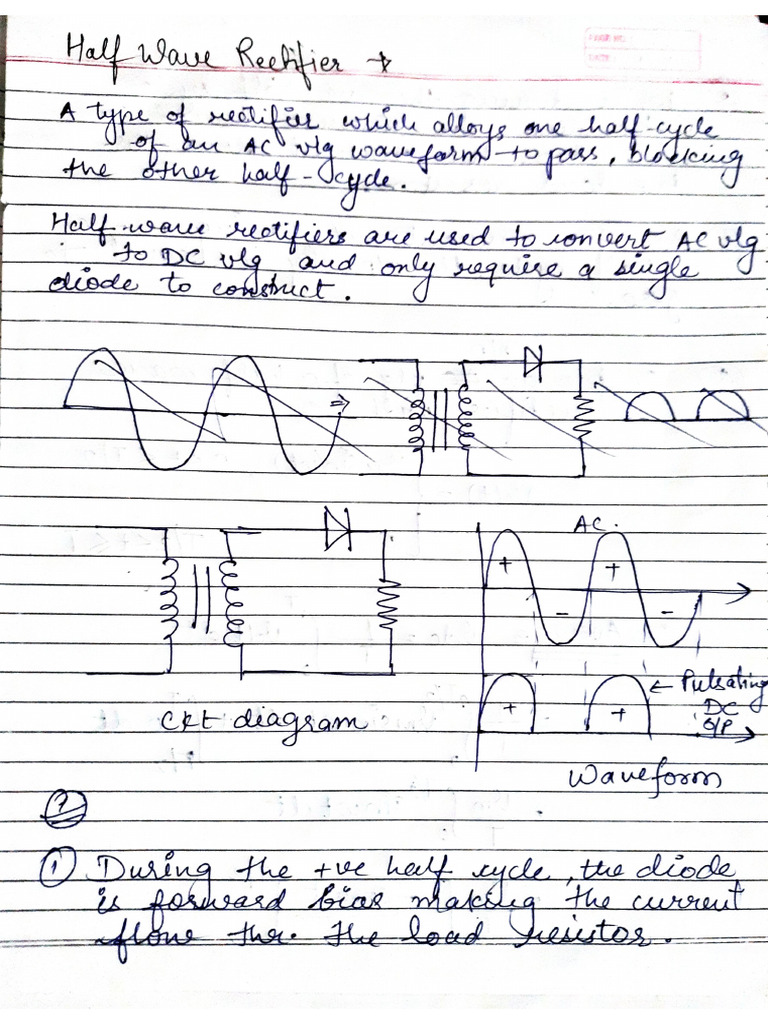 Half Wave Rectifier
PAGE NO.
DATE
A type of rectifier which alloys one half-cycle
of an AC vlg waveform to pass, blocking
the other half-cycle.
Half wave rectifiers are used to convert AC vlg
to DC vlg and only require a single
diode to construct.
⇒
AC.
+ +
- -
← Pulsating
DC
O/P
+ +
CKt diagram
Waveform
① During the +ve half cycle, the diode
is forward bias making the current
flow thr. the load resistor.